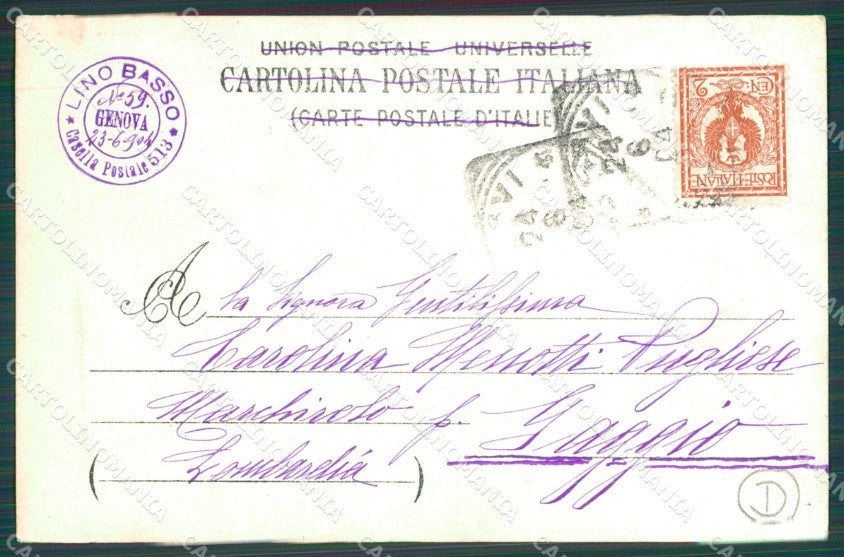 UNION POSTALE UNIVERSELLE
CARTOLINA POSTALE ITALIANA
(CARTE POSTALE D'ITALIE)
LINO BASSO
No 59.
GENOVA
23-6-904
Casella Postale 513
2 CEN
POSTE ITALIANE
24
6
24
6
A la Signora Gentilissima
Carolina Menotti Pugliese
Marchirolo p. Gaggio
(Lombardia)
D
CARTOLINOMANIA